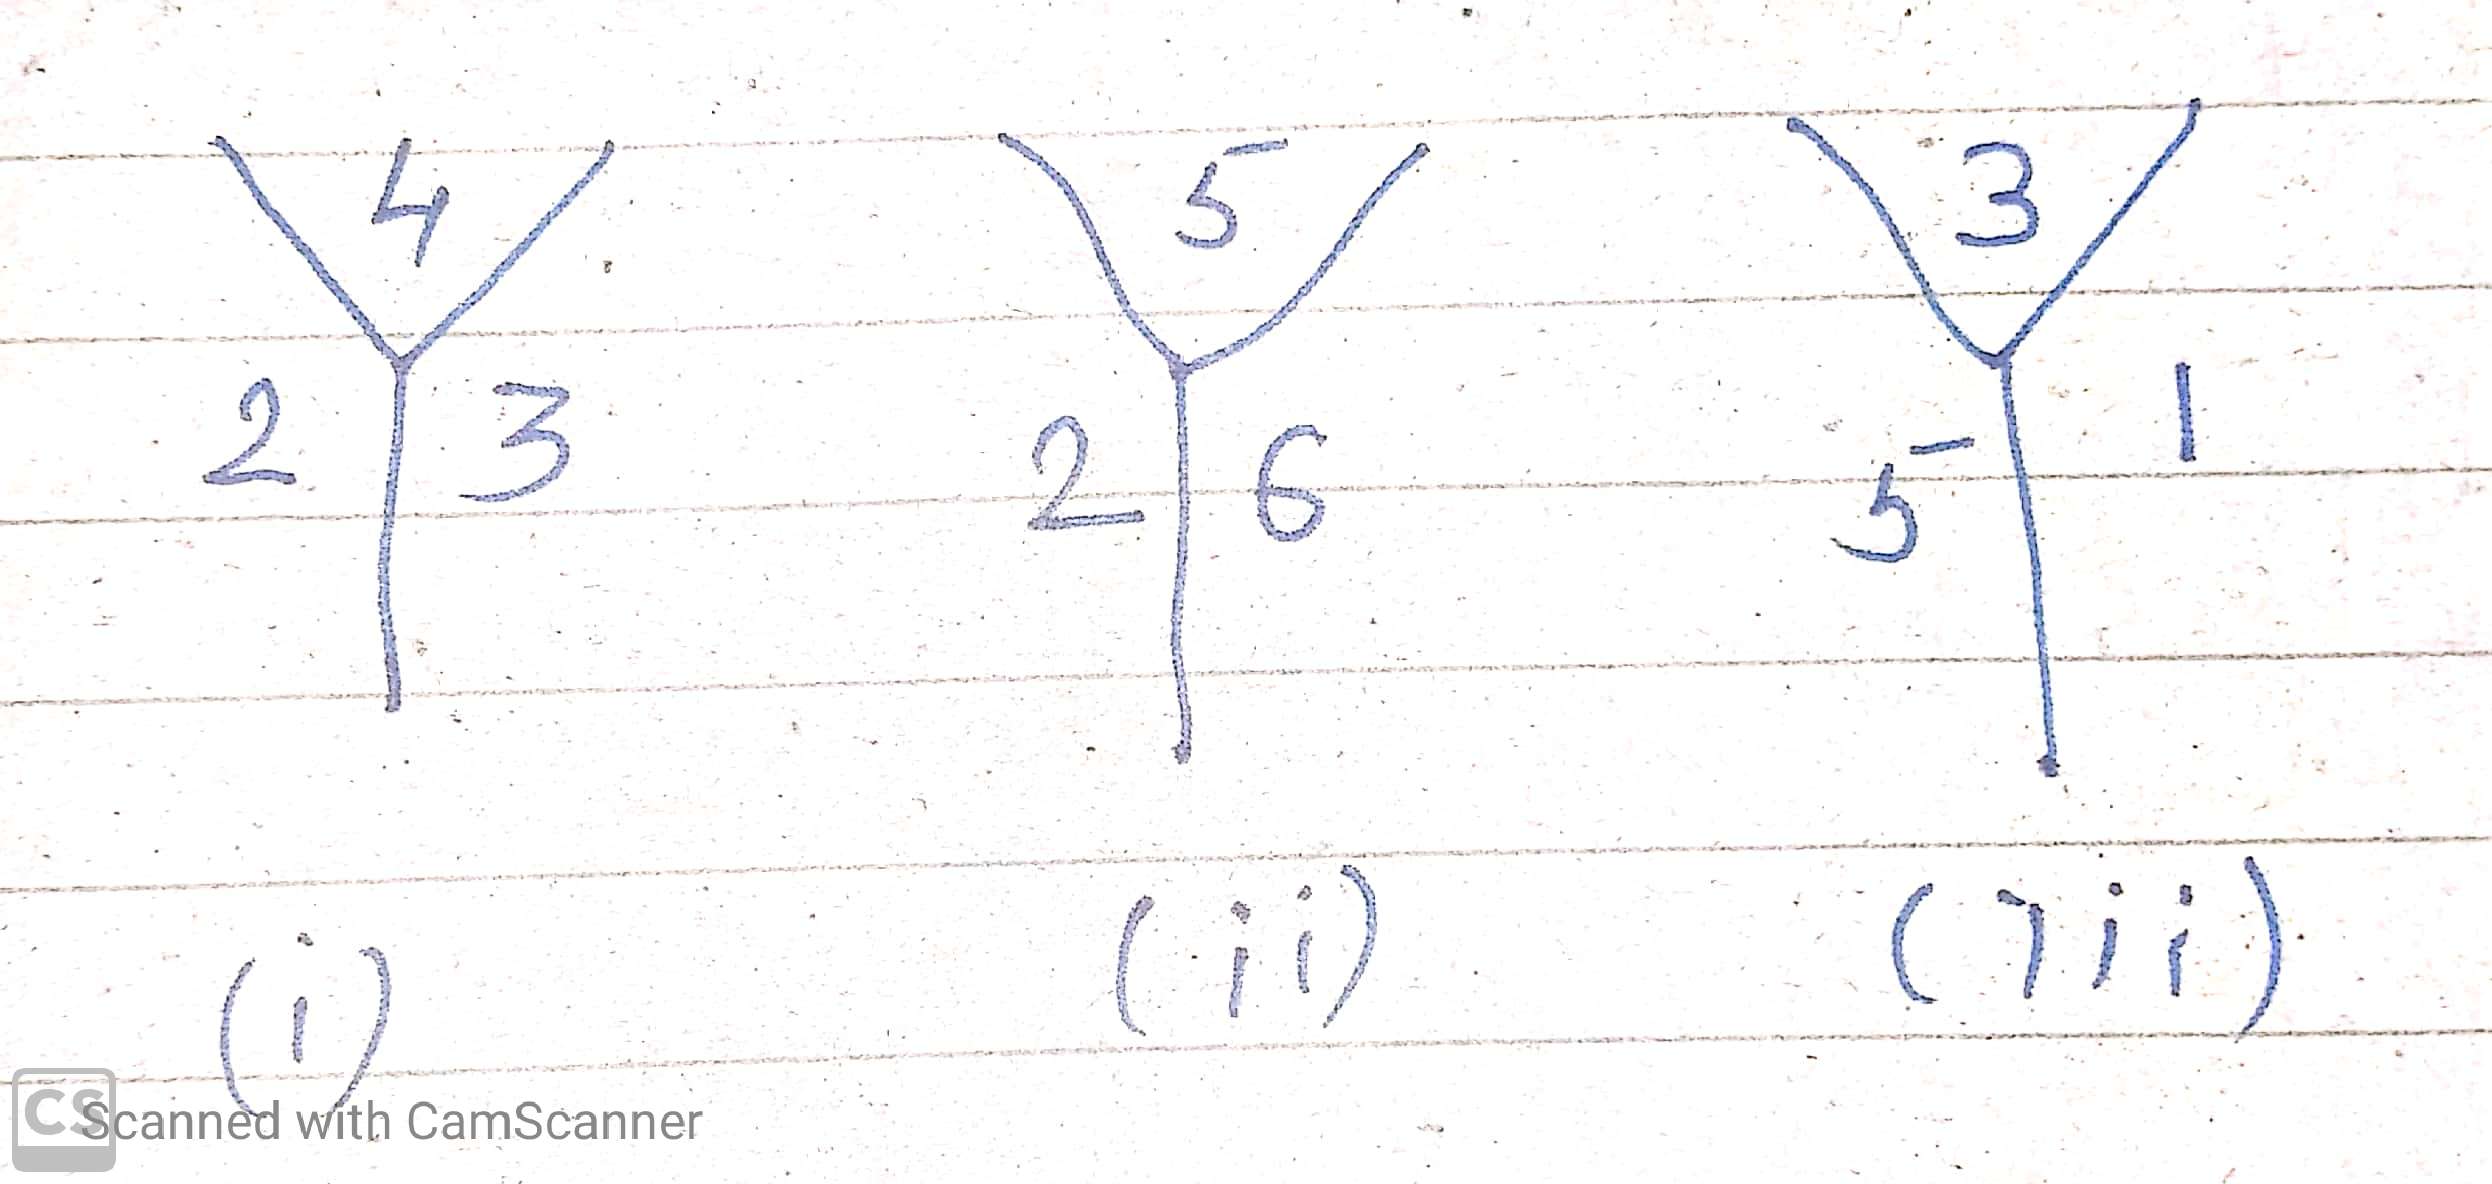 4
2 3
5
2 6
3
5 1
(i) (ii) (iii)
CS Scanned with CamScanner